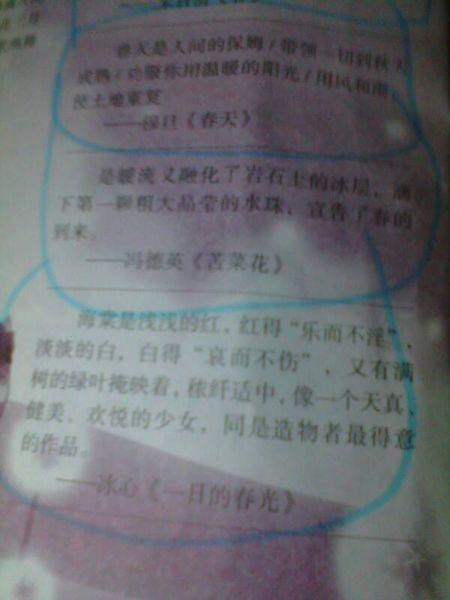 春天是人间的保姆/带领一切到秋天
成熟/劝服你用温暖的阳光/用风和雨,
使土地重复
——穆旦《春天》
是暖流又融化了岩石上的冰层,滴
下第一颗粗大晶莹的水珠,宣告了春的
到来。
——冯德英《苦菜花》
海棠是浅浅的红,红得“乐而不淫”,
淡淡的白,白得“哀而不伤”,又有满
树的绿叶掩映着,秾纤适中,像一个天真、
健美、欢悦的少女,同是造物者最得意
的作品。
——冰心《一日的春光》